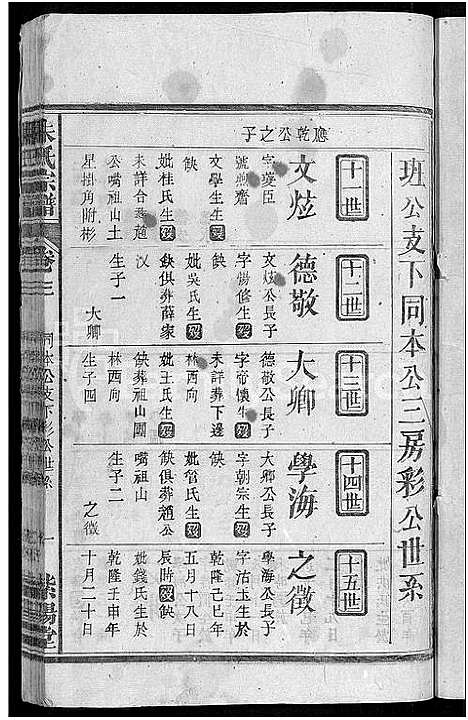 班公支下同本公三房彩公世系
十一世
應乾公之子
文炫
字燮臣
號煦齋
文學生生歿
缺
妣桂氏生歿
未詳合葬趙
公嘴祖山土
星掛角附彬
十二世
德敬
文炫公長子
字暢修生歿
缺
妣吳氏生歿
缺俱葬薛家
汊
生子一
大卿
十三世
大卿
德敬公長子
字帝懷生歿
未詳葬下邊
林西向
妣王氏生歿
缺葬祖山團
林西向
生子四
十四世
學海
大卿公長子
字朝宗生歿
缺
妣管氏生歿
缺俱葬趙公
嘴祖山
生子二
之徵
十五世
之徵
學海公長子
字沽玉生於
乾隆己巳年
五月十八日
辰時歿缺
妣錢氏生於
乾隆壬申年
十月二十日
朱氏宗譜
卷三
同本公支下彩公世系
一
紫陽堂